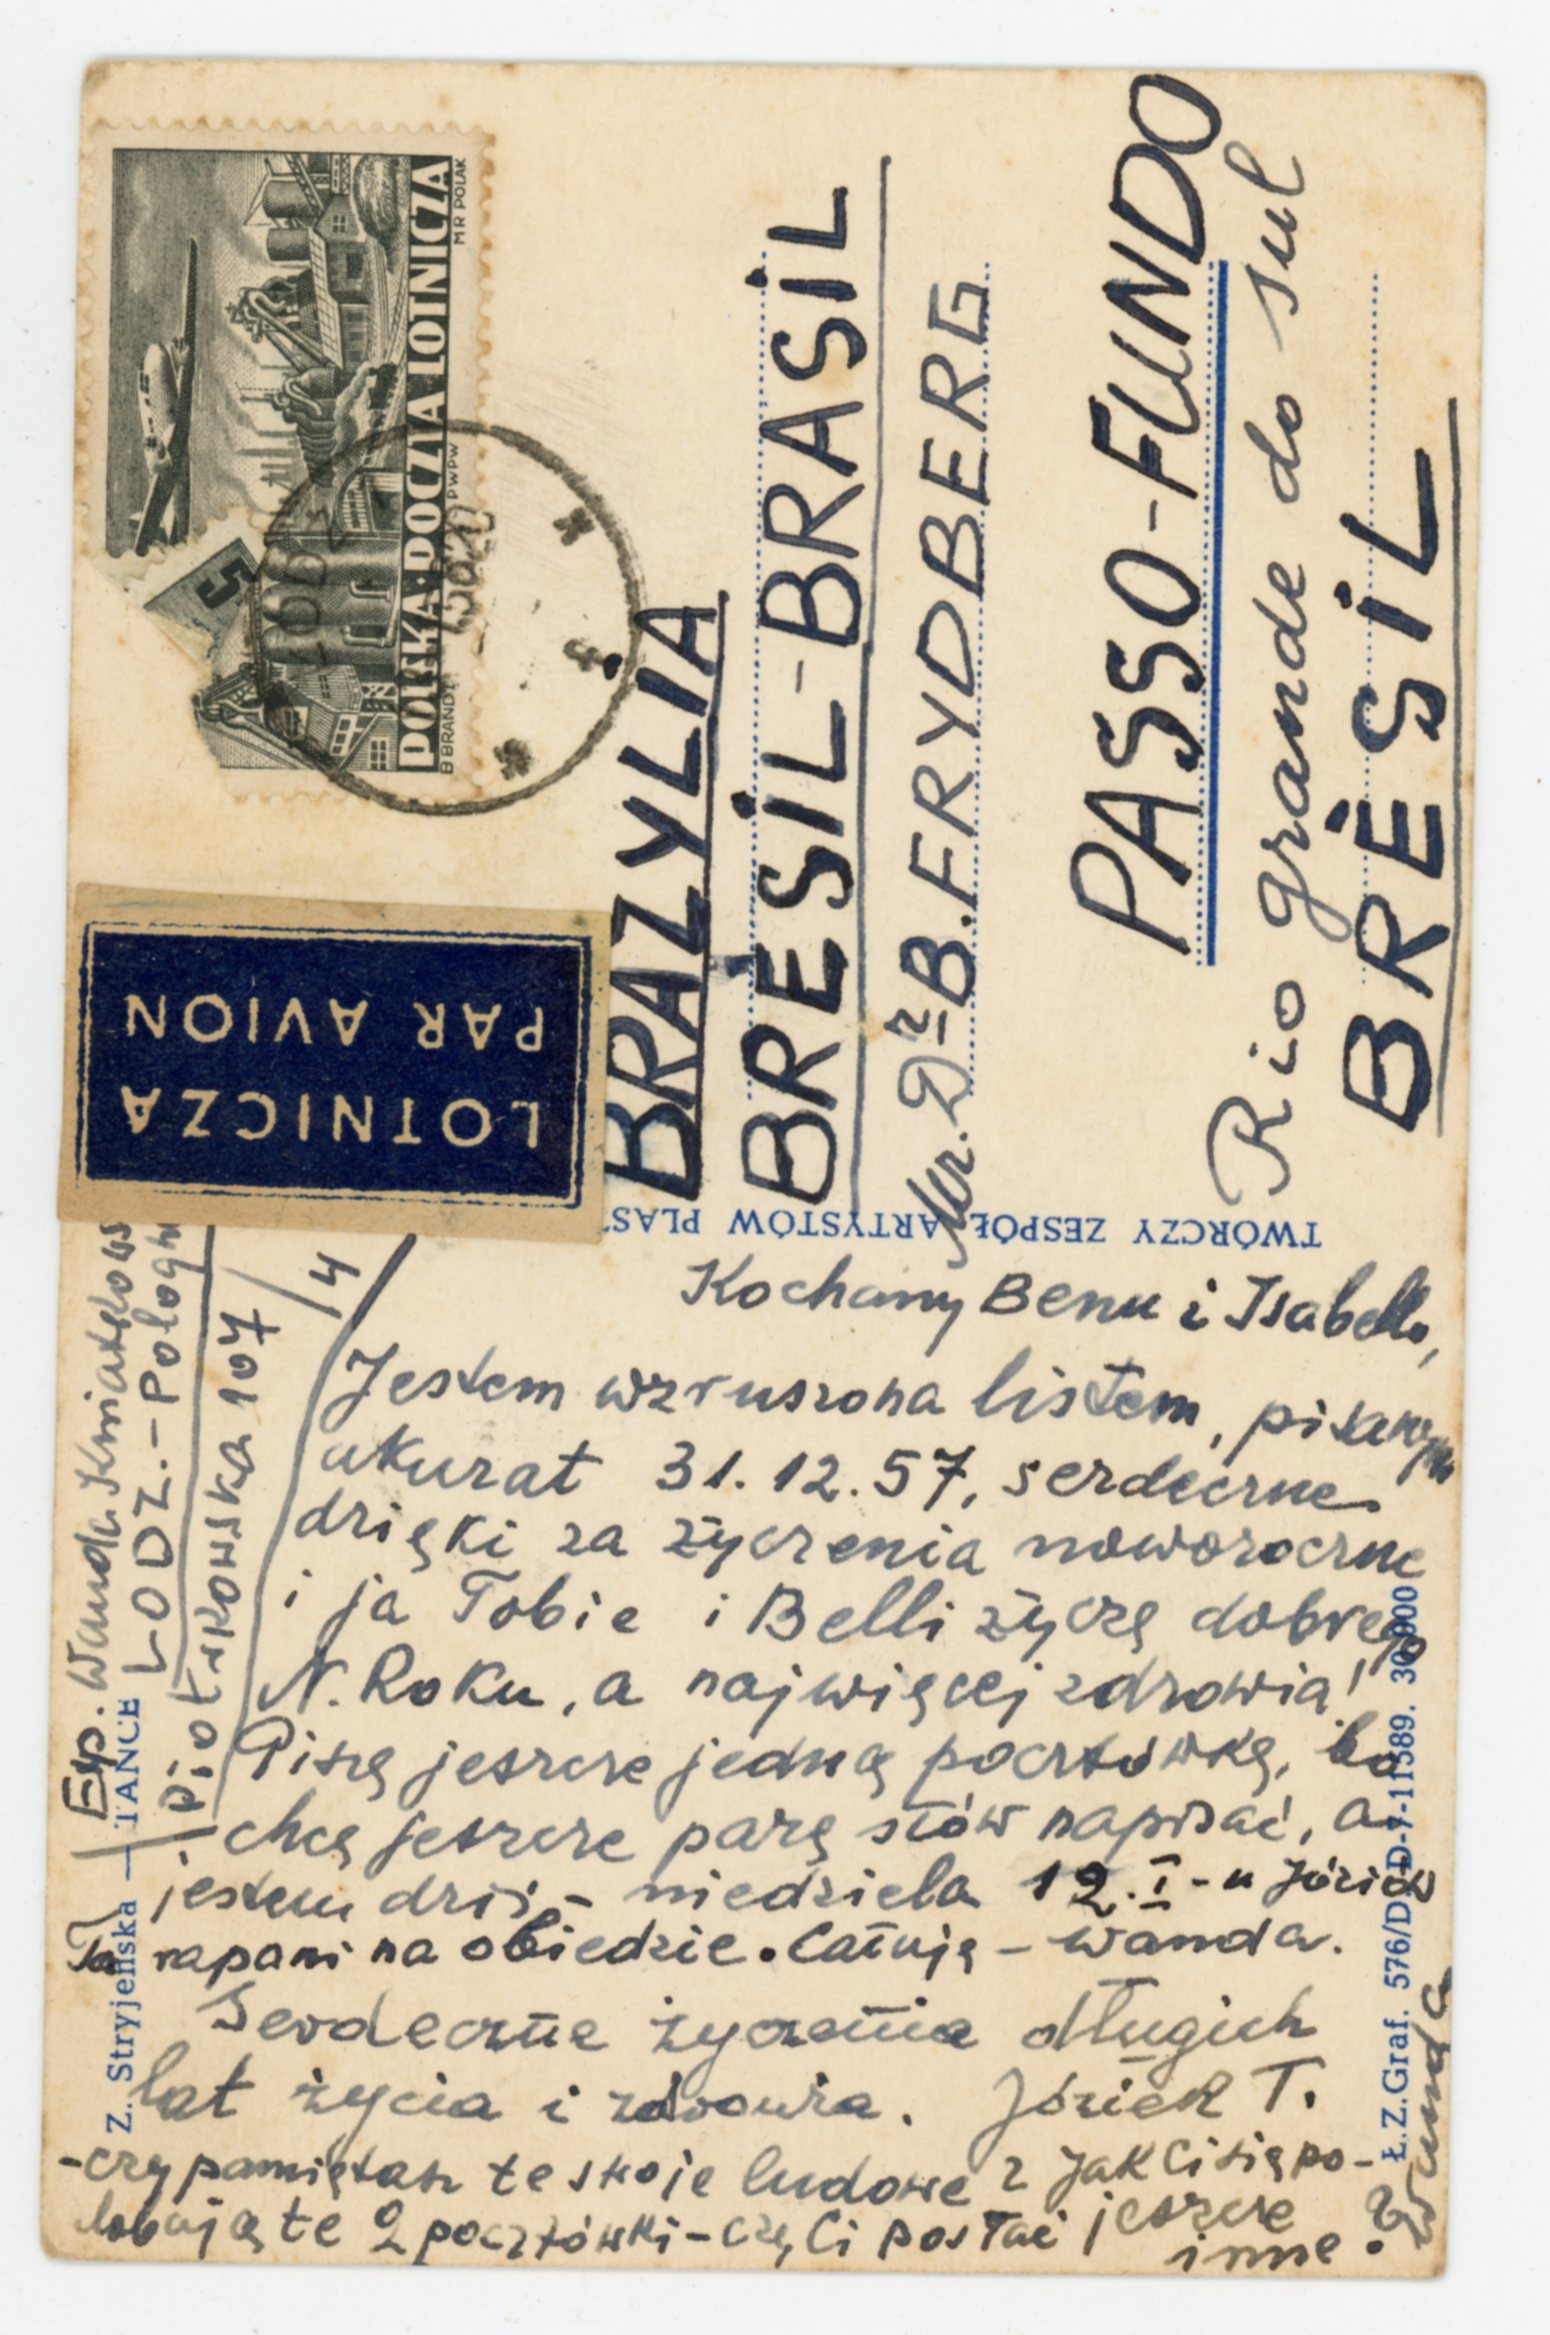 POLSKA·POCZTA LOTNICZA
B BRANDT PWPW M R POLAK
5
ŁÓDŹ
LOTNICZA
PAR AVION
BRAZYLIA
BRÉSIL-BRASIL
Mr. Dr B. FRYDBERG
PASSO-FUNDO
Rio grande do sul
BRÈSIL
TWÓRCZY ZESPÓŁ ARTYSTÓW PLAST
Exp. Wanda
ŁODZ.-Pologn
Piotrkowska 107/4
Z. Stryjeńska — TANCE
Kochany Benu i Isabello,
Jestem wzruszona listem, pisanym
akurat 31.12.57, serdeczne
dzięki za życzenia noworoczne
i ja Tobie i Belli życzę dobrego
N. Roku, a najwięcej zdrowia!
Piszę jeszcze jedną pocztówkę, bo
chcę jeszcze parę słów napisać, a
jestem dziś - niedziela 12.I - u Józiów
na obiedzie. Całuję - Wanda.
Serdeczne życzenia długich
lat życia i zdrowia. Józiek T.
- czy pamiętasz te stroje ludowe? Jak Ci się po-
dobają te 2 pocztówki - czy Ci posłać jeszcze
inne?
Wanda
Ł.Z.Graf. 576/D D-7-11589. 30.000